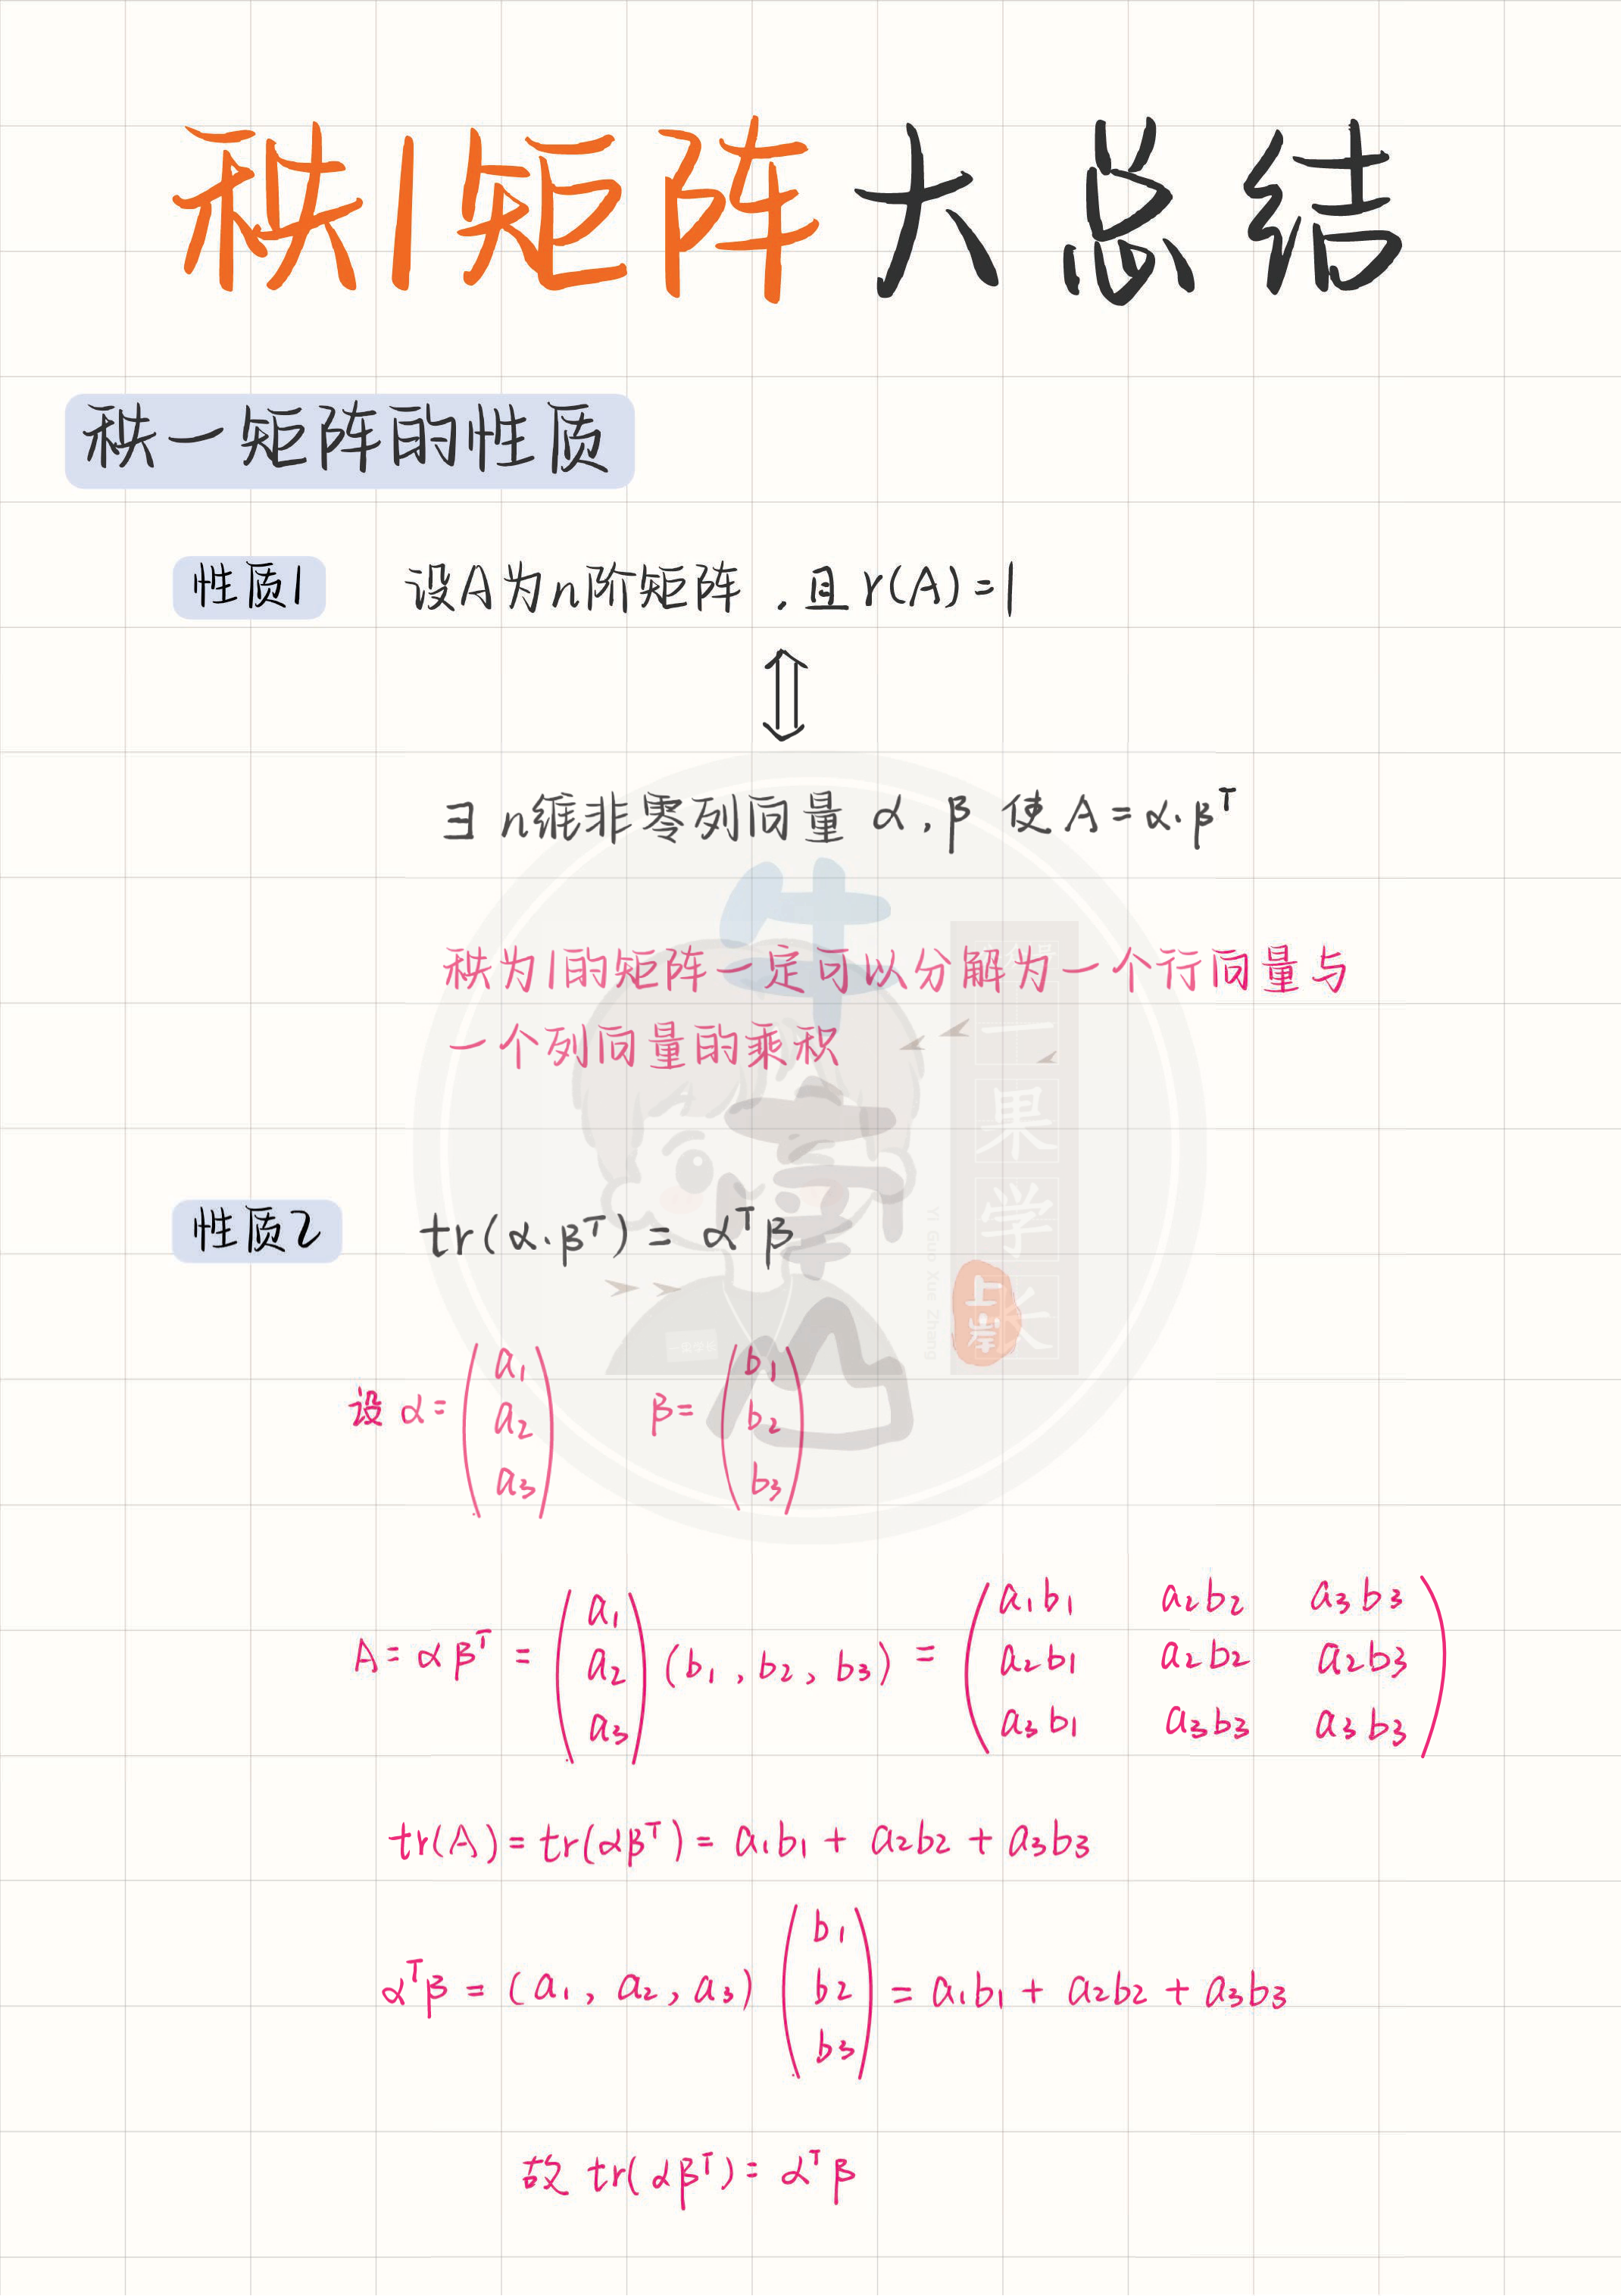 秩1矩阵大总结
秩一矩阵的性质
性质1 设A为n阶矩阵.且r(A)=1
⇕
∃ n维非零列向量 α,β 使 A=α·βᵀ
秩为1的矩阵一定可以分解为一个行向量与
一个列向量的乘积
牛
一果学长
Yi Guo Xue Zhang
上岸
性质2 tr(α·βᵀ) = αᵀβ
设 α= (a₁ a₂ a₃) β= (b₁ b₂ b₃)
A= αβᵀ = (a₁ a₂ a₃) (b₁, b₂, b₃) = (a₁b₁ a₂b₂ a₃b₃
a₂b₁ a₂b₂ a₂b₃
a₃b₁ a₃b₃ a₃b₃)
tr(A) = tr(αβᵀ) = a₁b₁ + a₂b₂ + a₃b₃
αᵀβ = (a₁, a₂, a₃) (b₁ b₂ b₃) = a₁b₁ + a₂b₂ + a₃b₃
故 tr(αβᵀ) = αᵀβ